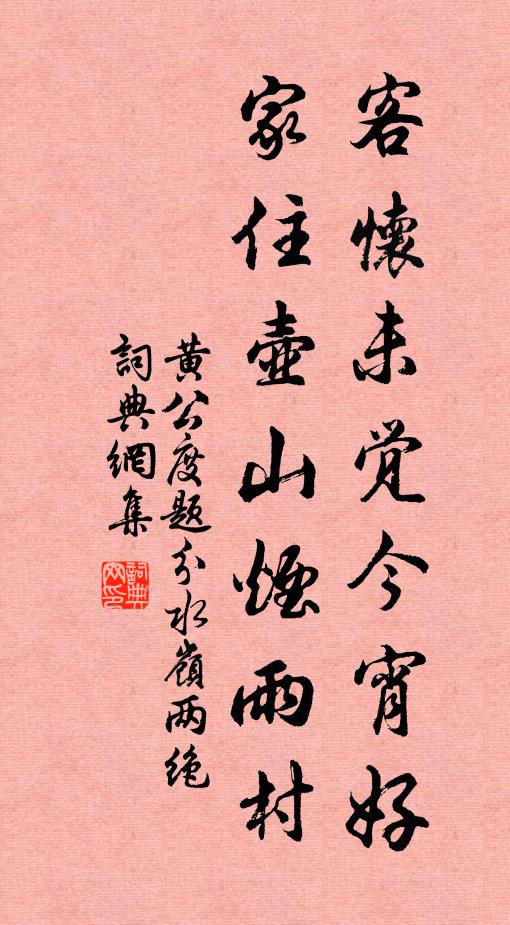 客懷未觉今宵好
家住壺山煙雨村
黄公度题分水嶺两绝
詞典網集
詞典网印